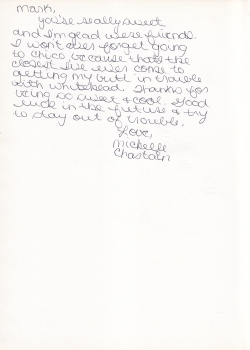 Mark,
you're really sweet
and I'm glad we're friends.
I won't ever forget going
to Chico, because that's the
closest I've ever come to
getting my butt in trouble
with Whitehead. Thanks for
being so sweet & cool. Good
luck in the future & try
to stay out of trouble.
Love,
Michelle
Chastain